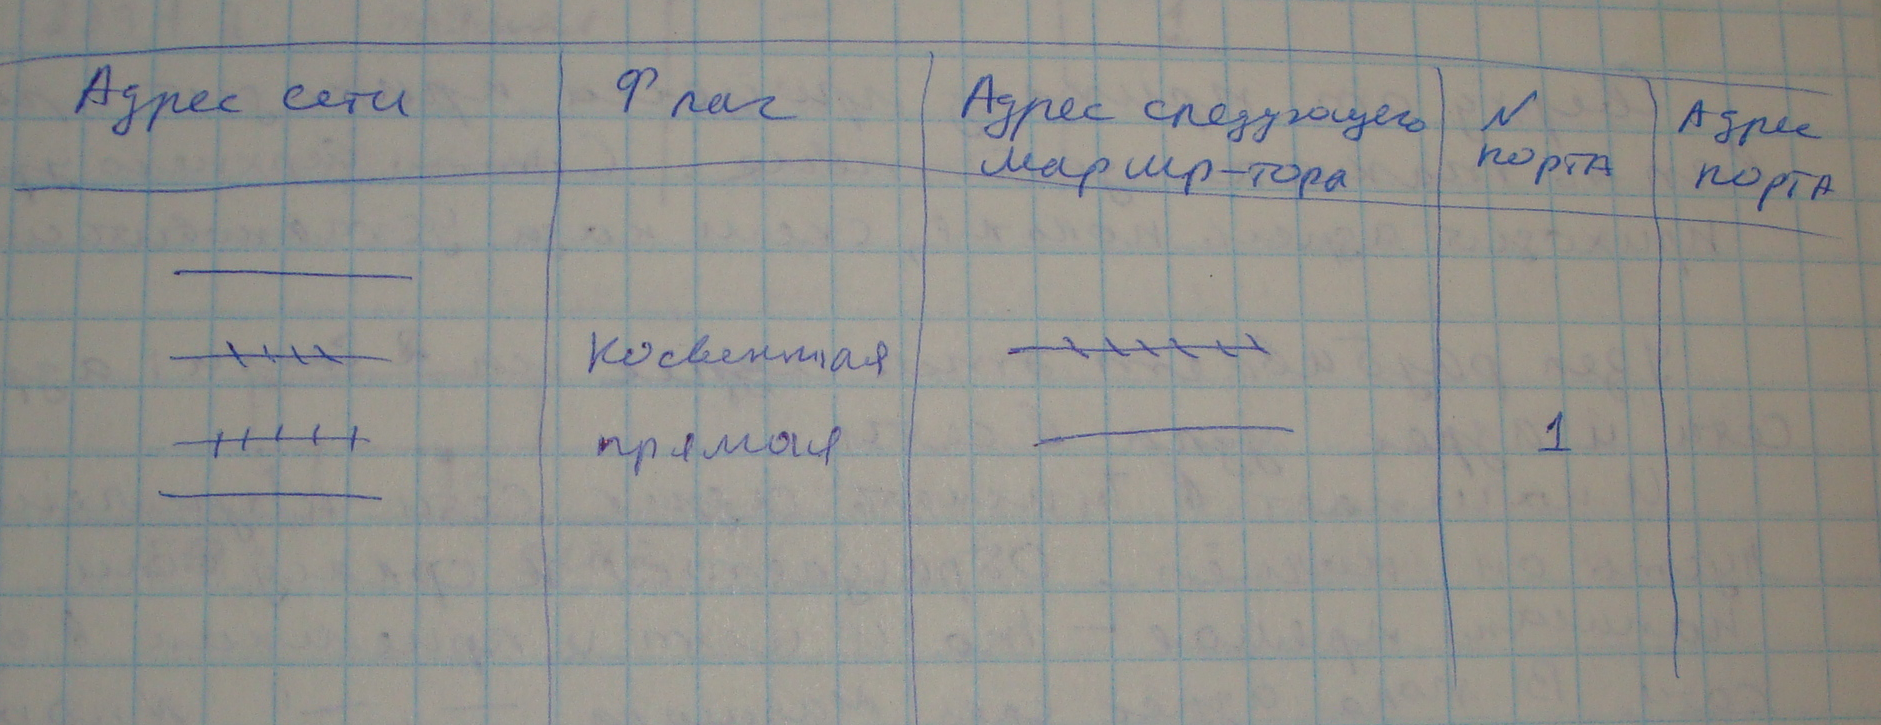 Адрес сети
Флаг
Адрес следующего
маршр-тора
N
порта
Адрес
порта
косвенная
прямая
1